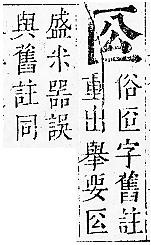 俗字舊註
重出舉要
盛米器誤
與舊註同